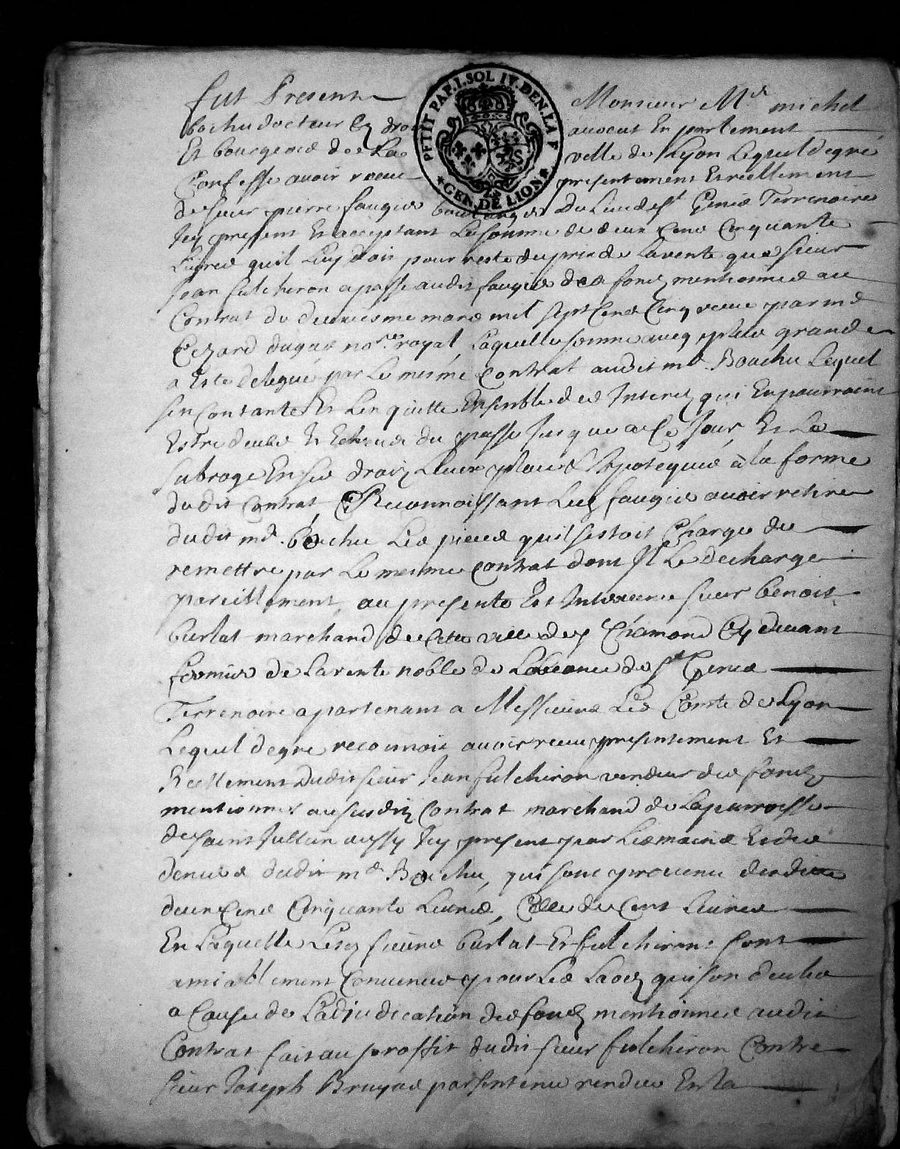 PETIT PAP. I. SOL IV. DEN. LA F
GEN. DE LION
fut Present Monsieur Mr michel
bochu docteur Ez droi avocat En parlement
Et bourgeois de La ville de Lyon Lequel degré
Confesse avoir receu presentement Et reellement
de sieur pierre faugier boulanger du Lieu de st Genis Terrenoire
Icy present Et acceptant La somme de deux Cens Cinquante
Livres quil Luy doit pour reste du prix de La vente que sieur
Jean fulchiron a passé audit faugier des fondz mentionnes au
Contrat du deuxiesme mars mil sept Cens Cinq receu par me
dugas nore royal Laquelle somme avecq plus grande
a Esté deleguée par Le mesme Contrat audit mr Bouchu Lequel
sen Contante Et Len quitte Ensemble des Interetz qui En pourroient
Estre deubs Et Echeus du passé Jusques a Ce Jour Et Le
subroge En ses droitz Lieux places et hypoteques à la forme
dudit Contrat Reconnoissant Ledz faugier avoir retiré
dudit mr Bochu Les pieces quil sestoit Chargé de
remettre par Le mesme Contrat dont Il Le decharge
pareillement, au presente Est Intervenu sieur benoit
burlat marchand de Cette ville de st Chamond Cy devant
fermier de La rente noble de de st Genis
Terrenoire apartenant a Messieurs Les Comte de Lyon
Lequel de gre reconnoit avoir receu presentement Et
Reellement dudit sieur Jean fulchiron vendeur des fondz
mentionnes au susdit Contrat marchand de La parroisse
de saint Jullien aussy Icy present par Les mains Et des
deniers dudit mr Bochu, qui sont provenu desdites
deux Cens Cinquante Livres, Celle de Cent Livres
En Laquelle Lesdz sieurs burlat Et fulchiron sont
amiablement Convenus pour Les Laodz qui son deubs
a Cause de Ladjudication des fondz mentionnes audit
Contrat fait au proffit dudit sieur fulchiron Contre
sieur Joseph Bruyas par sentence rendue En La